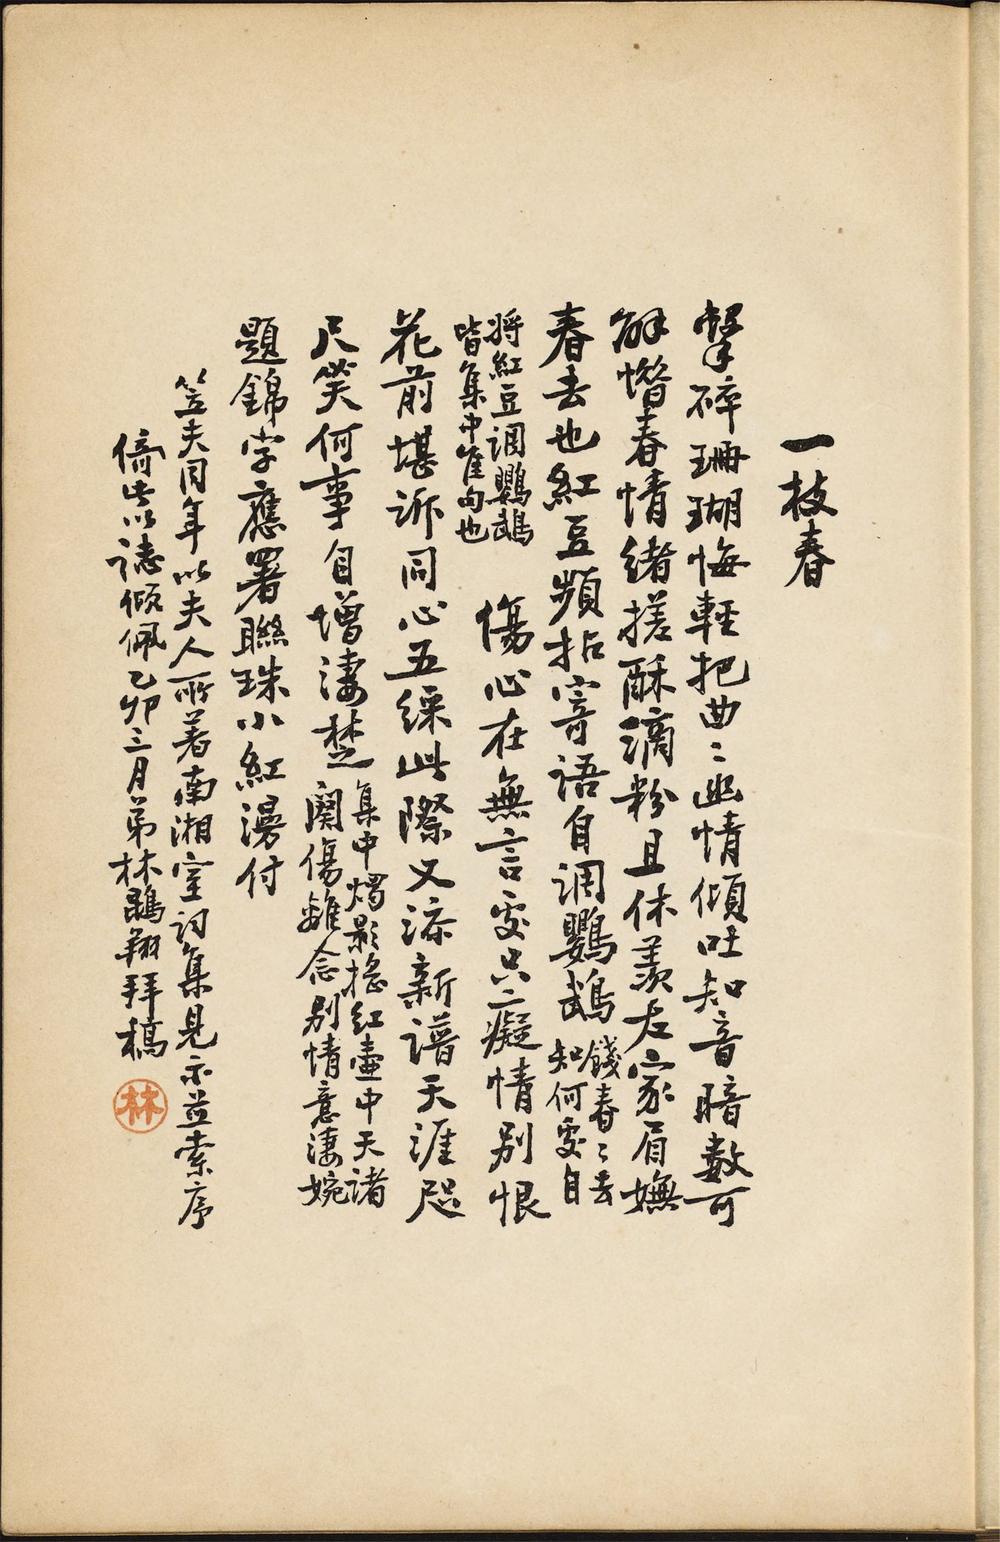 一枝春
擊碎珊瑚悔輕把曲〻幽情傾吐知音暗數可
解惜春情緒搓酥滴粉且休羨左家眉嫵
春去也紅豆頻拈寄語自調鸚鵡餞春〻去知何處自
將紅豆調鸚鵡皆集中隹句也
傷心在無言處只〻癡情別恨
花前堪訴同心五綵此際又添新譜天涯咫
尺笑何事自增淒楚集中燭影搖紅壺中天諸闋傷離念別情意淒婉
題錦字應署聯珠小紅漫付
笠夫同年以夫人所著南湘室詞集見示並索序
倚此以誌傾佩乙卯三月弟林鵾翔拜稿
林